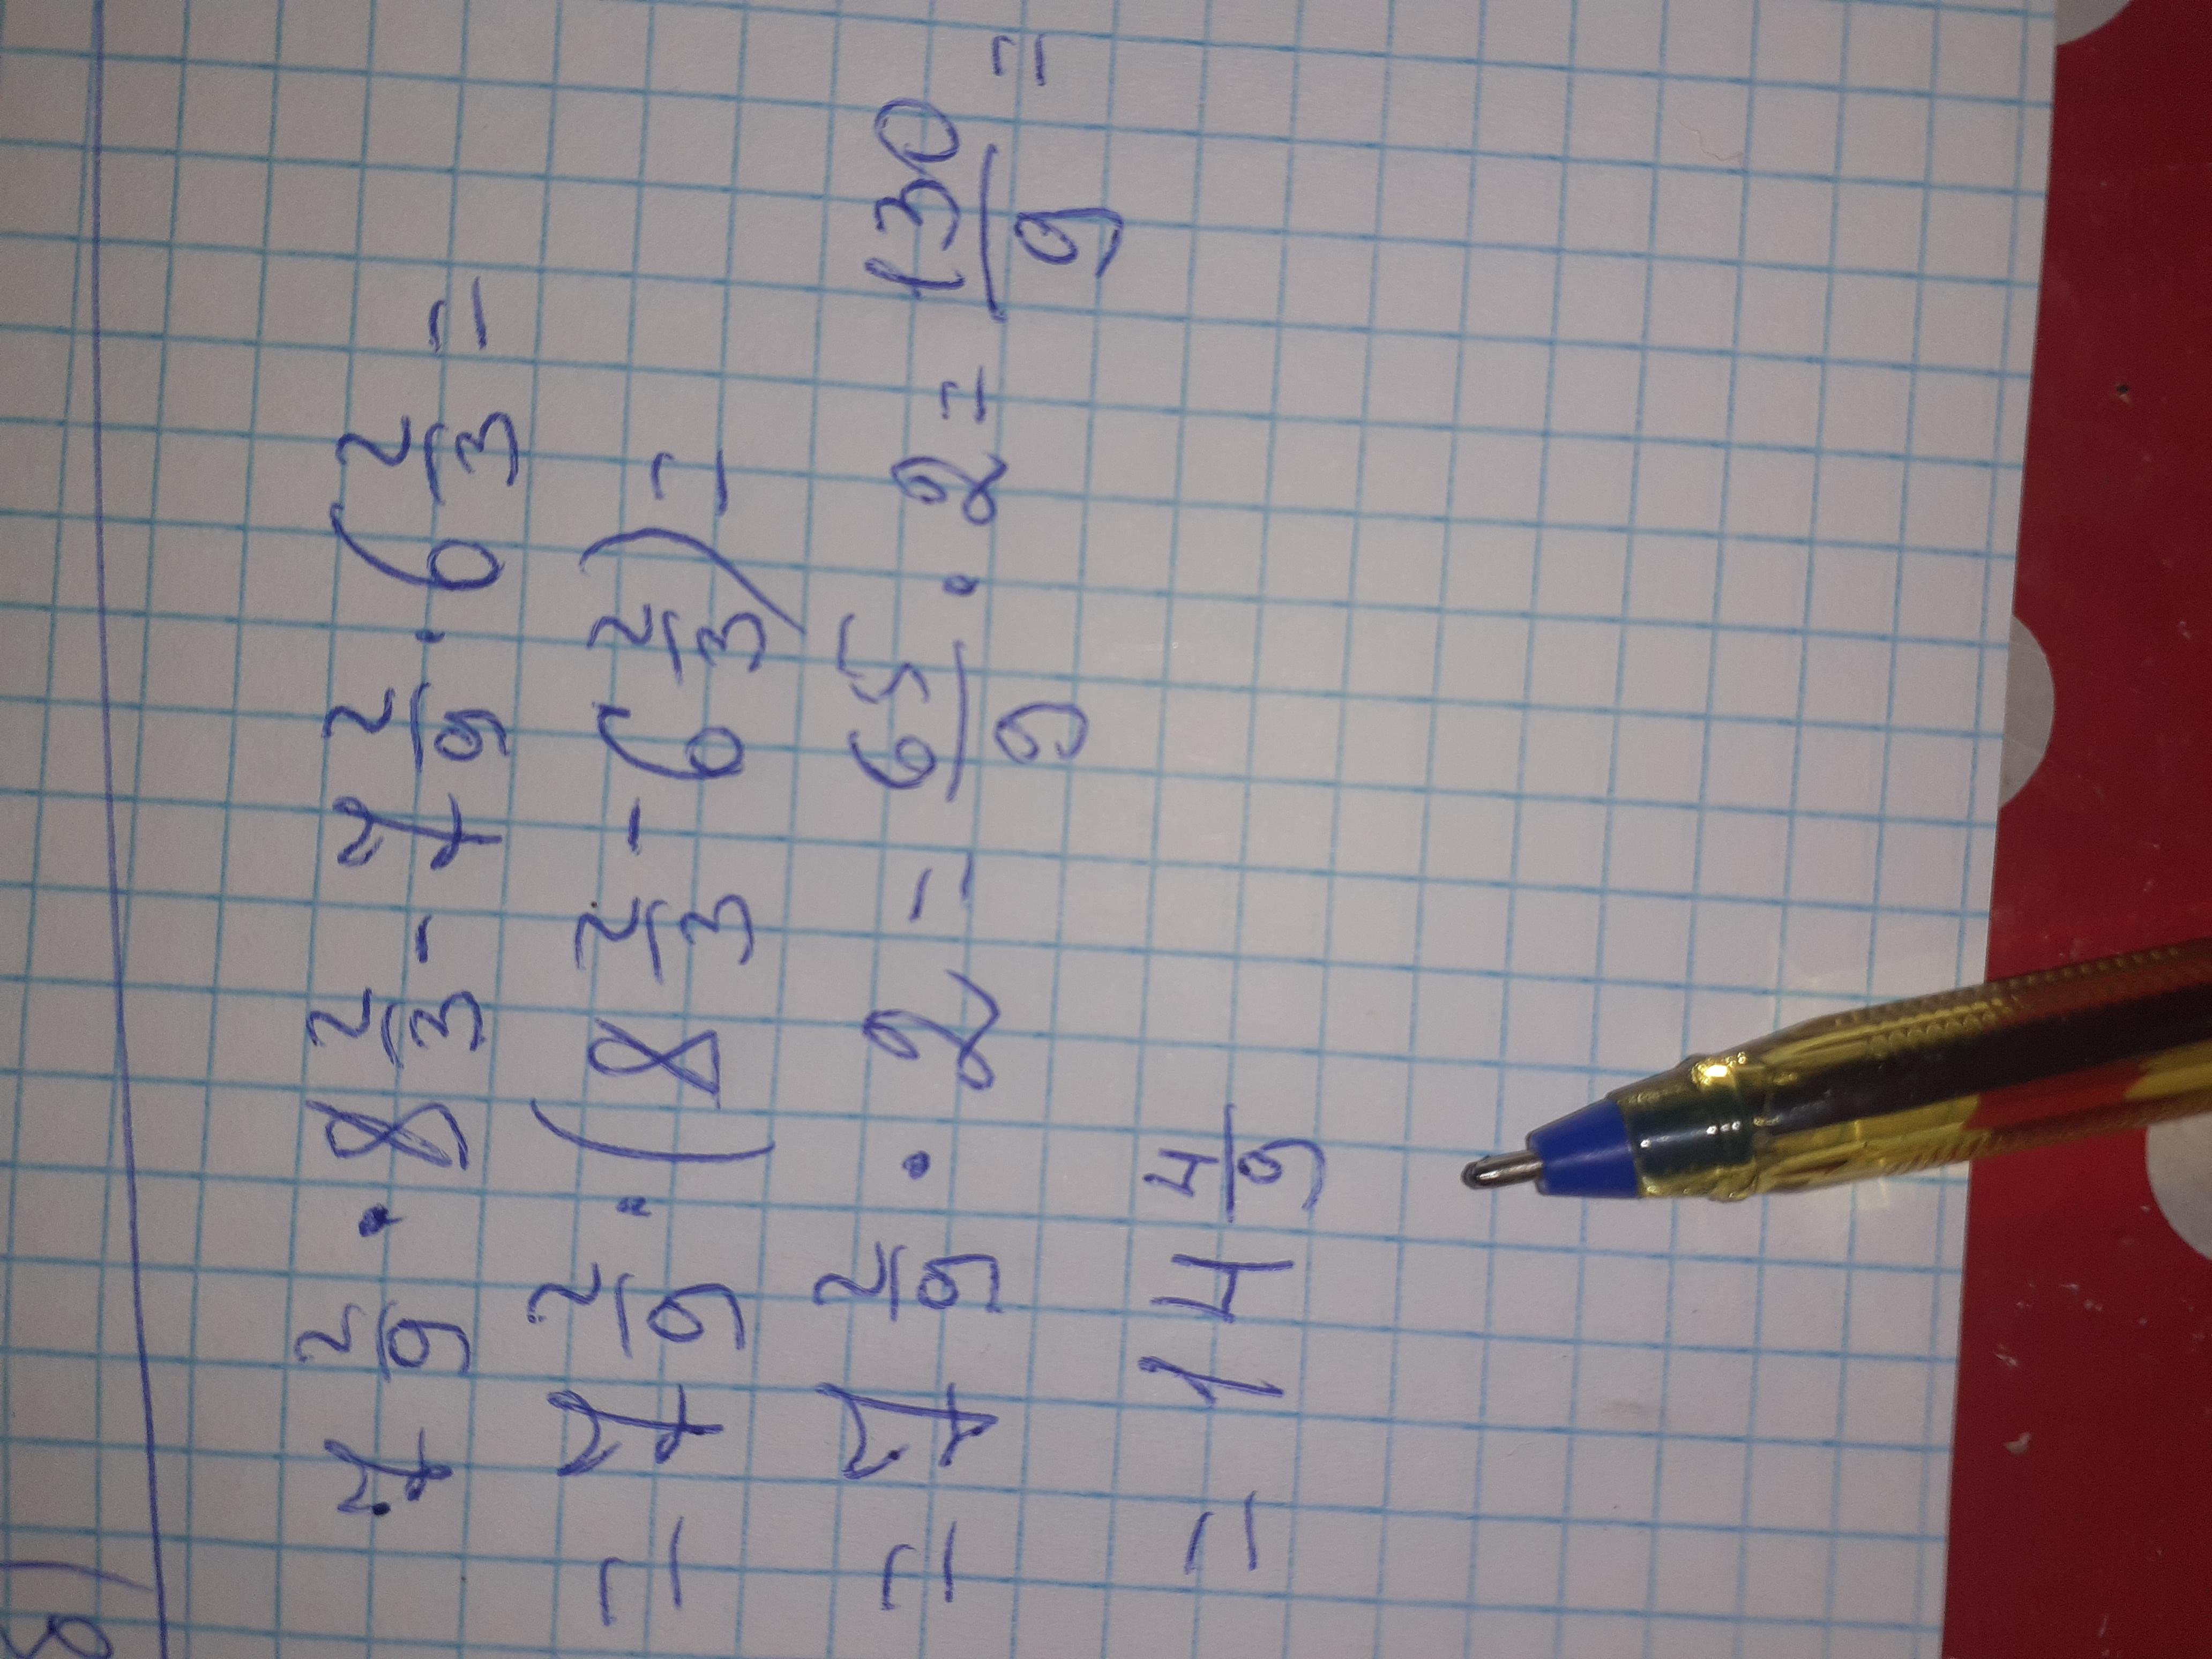 8)
7 2/9 · 8 2/3 - 7 2/9 · 6 2/3 =
= 7 2/9 · (8 2/3 - 6 2/3) =
= 7 2/9 · 2 = 65/9 · 2 = 130/9 =
= 14 4/9